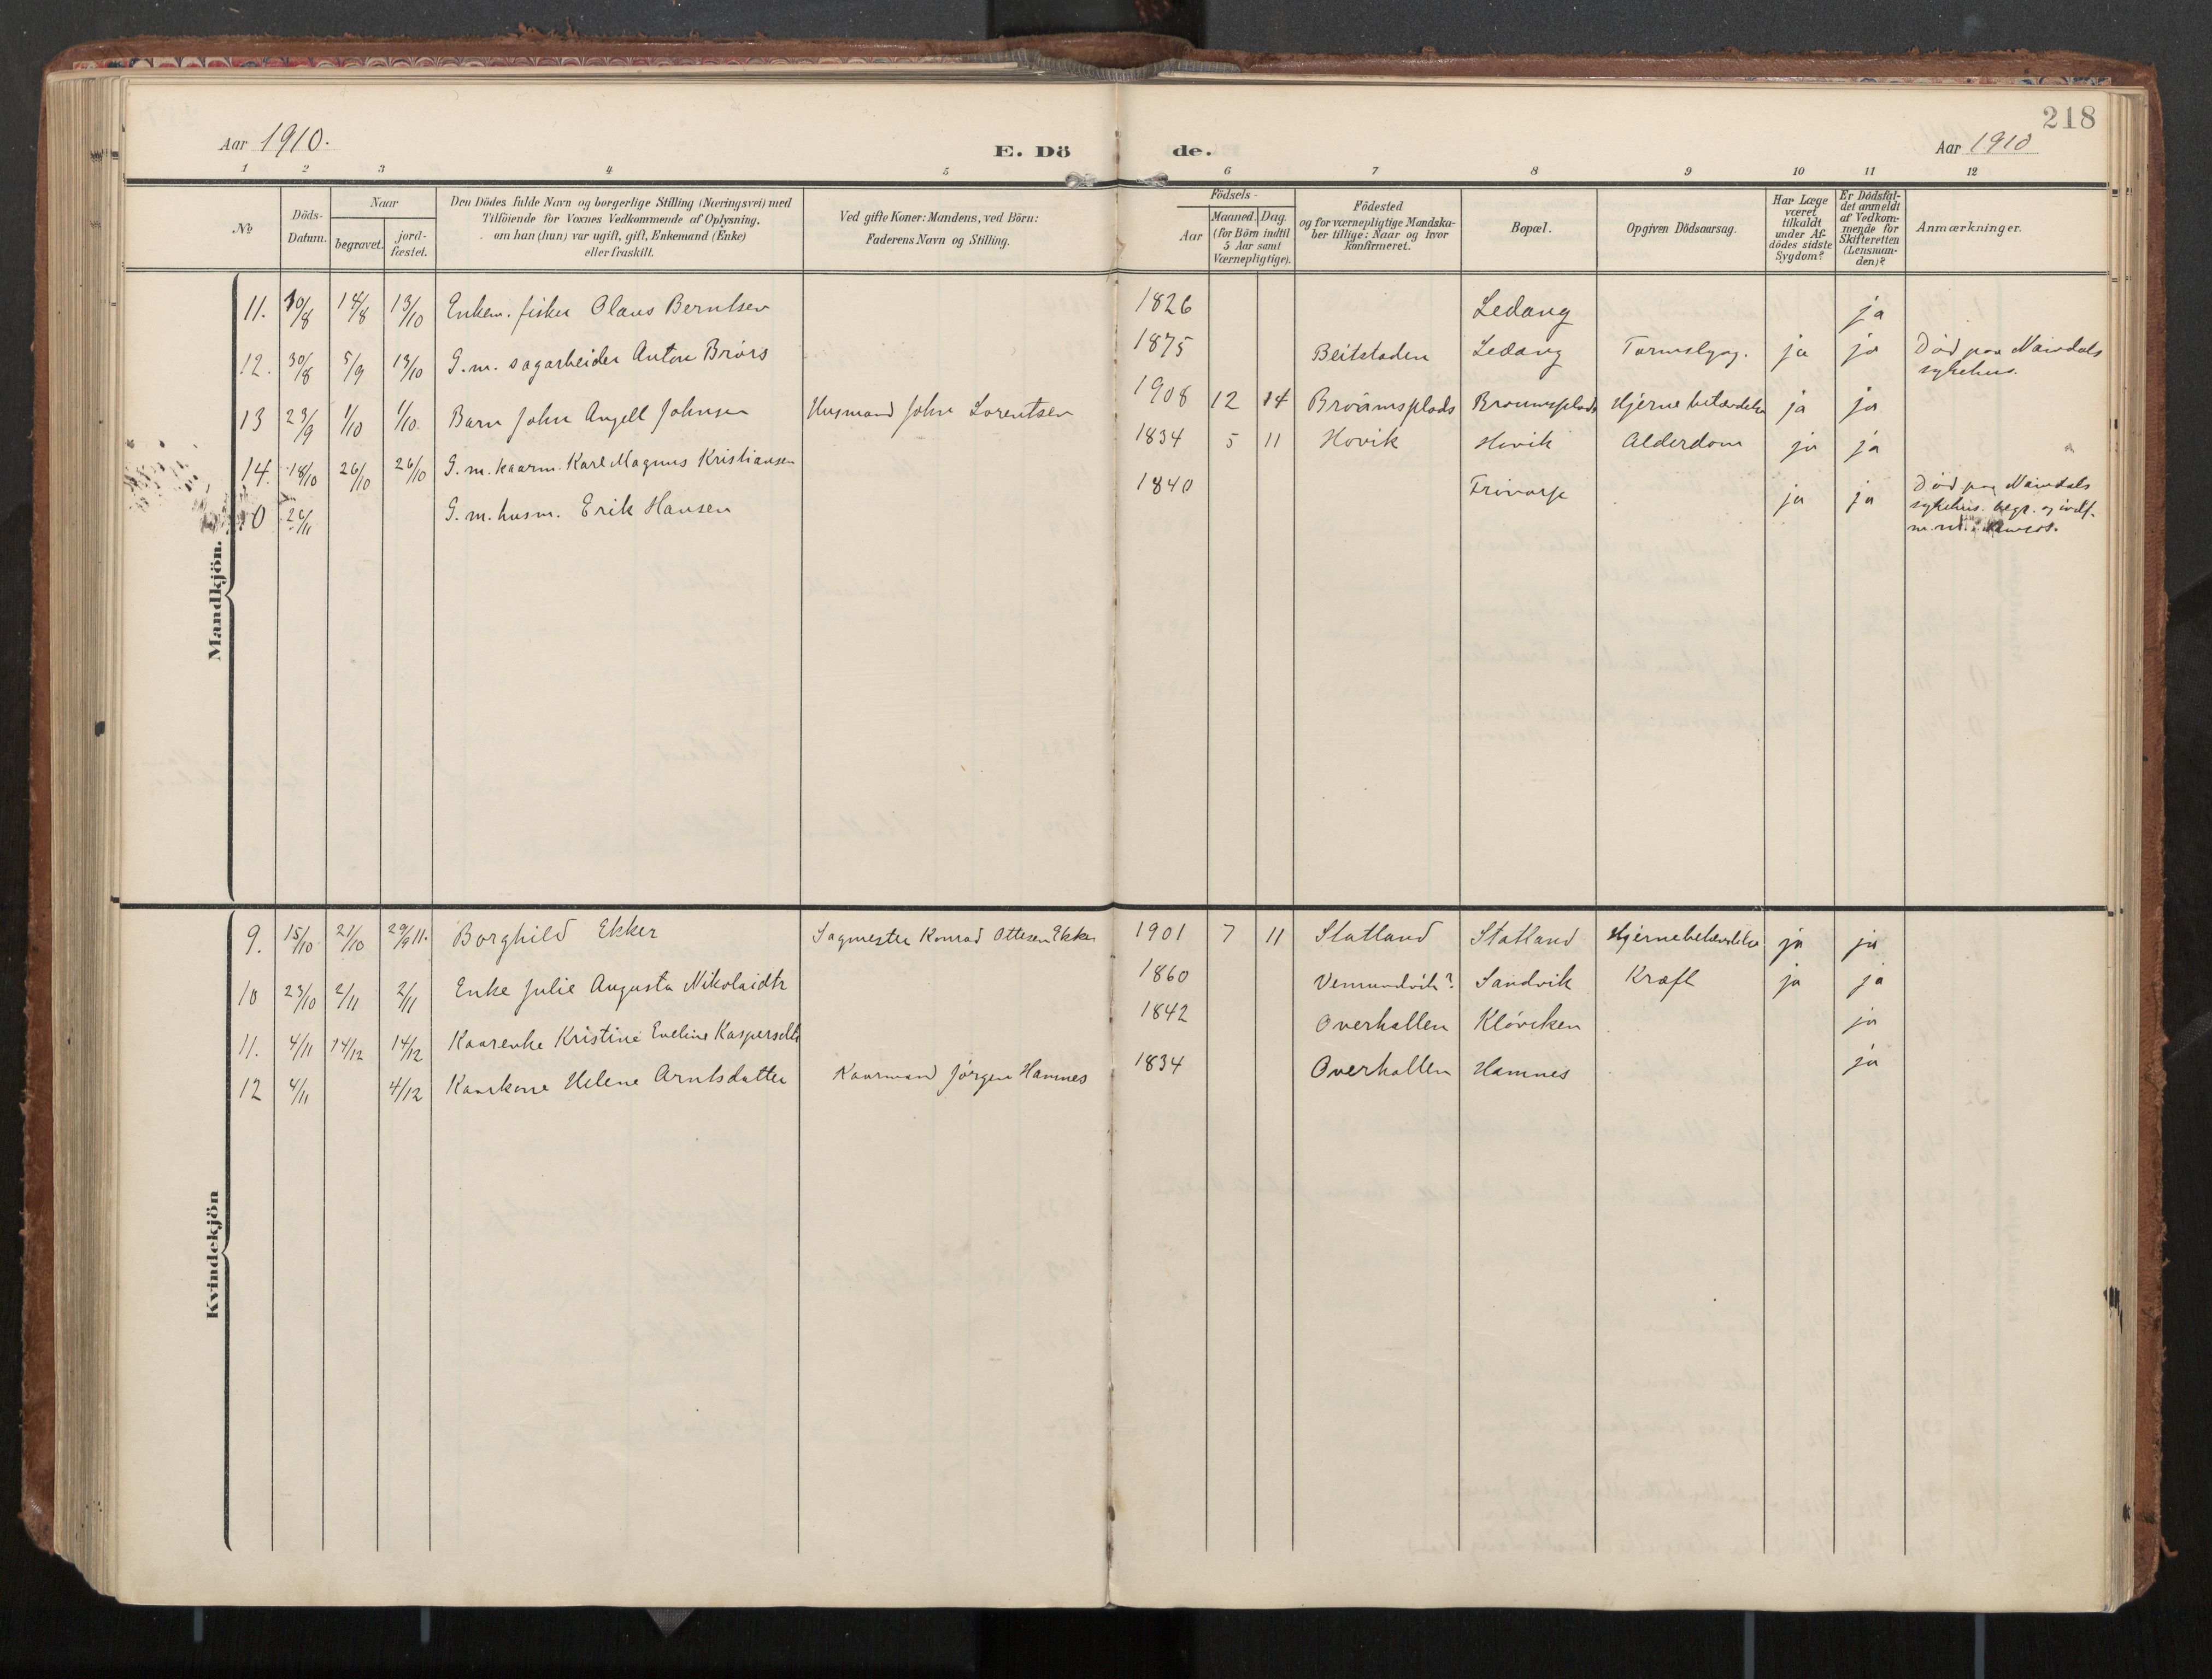 218
Aar 1910.
E. Dö de.
Aar 1910
1 2 3 4 5 6 7 8 9 10 11 12
No
Döds-Datum.
Naar
begravet.
jord-fæstet.
Den Dödes fulde Navn og borgerlige Stilling (Næringsvei) med
Tilföiende for Voxnes Vedkommende af Oplysning,
om han (hun) var ugift, gift, Enkemand (Enke)
eller fraskilt.
Ved gifte Koner: Mandens, ved Börn:
Faderens Navn og Stilling.
Födsels-
Aar
Maaned. Dag.
(for Börn indtil
5 Aar samt
Værnepligtige).
Födested
og for værnepligtige Mandska-
ber tillige: Naar og hvor
konfirmeret.
Bopæl.
Opgiven Dödsaarsag.
Har Læge
været
tilkaldt
under Af-
dödes sidste
Sygdom?
Er Dödsfal-
det anmeldt
af Vedkom-
mende for
Skifteretten
(Lensman-
den)?
Anmærkninger.
Mandkjön.
11. 10/8 14/8 13/10 Enkem. fisker Olaus Berntsen 1826 Ledang ja
12. 30/8 5/9 13/10 G.m. sagarbeider Anton Brörs 1875 Beitstaden Ledang ja ja Död paa Namdals
sykehus.
13 23/9 1/10 1/10 Barn John Angell Johnsen Husmand John Lorentsen 1908 12 14 Bröumsplads Broumsplads Hjernebetændelse ja ja
14. 18/10 26/10 26/10 G.m. kaarm. Karl Magnus Kristiansen 1834 5 11 Hovik Hovik Alderdom ja ja
0 26/11 G.m. husm. Erik Hansen 1840 ja ja Död paa Namdals
sykehus. begr. og
Kvindekjön
9. 15/10 21/10 29/9 11. Borghild Ekker Sagmester Konrad Ottesen Ekker 1901 7 11 Statland Statland Hjernebetændelse ja ja
10 23/10 2/11 2/11 Enke Julie Augusta Nikolaidtr 1860 Vemundvik? Sandvik Kræft ja ja
11. 4/11 14/12 14/12 Kaarenke Kristine Eveline Kaspersdtr 1842 Overhallen Klövcken ja
12 4/11 4/12 Kaarkone Helene Arntsdatter Kaarmand Jörgen Hamnes 1834 Overhallen Hamnes ja